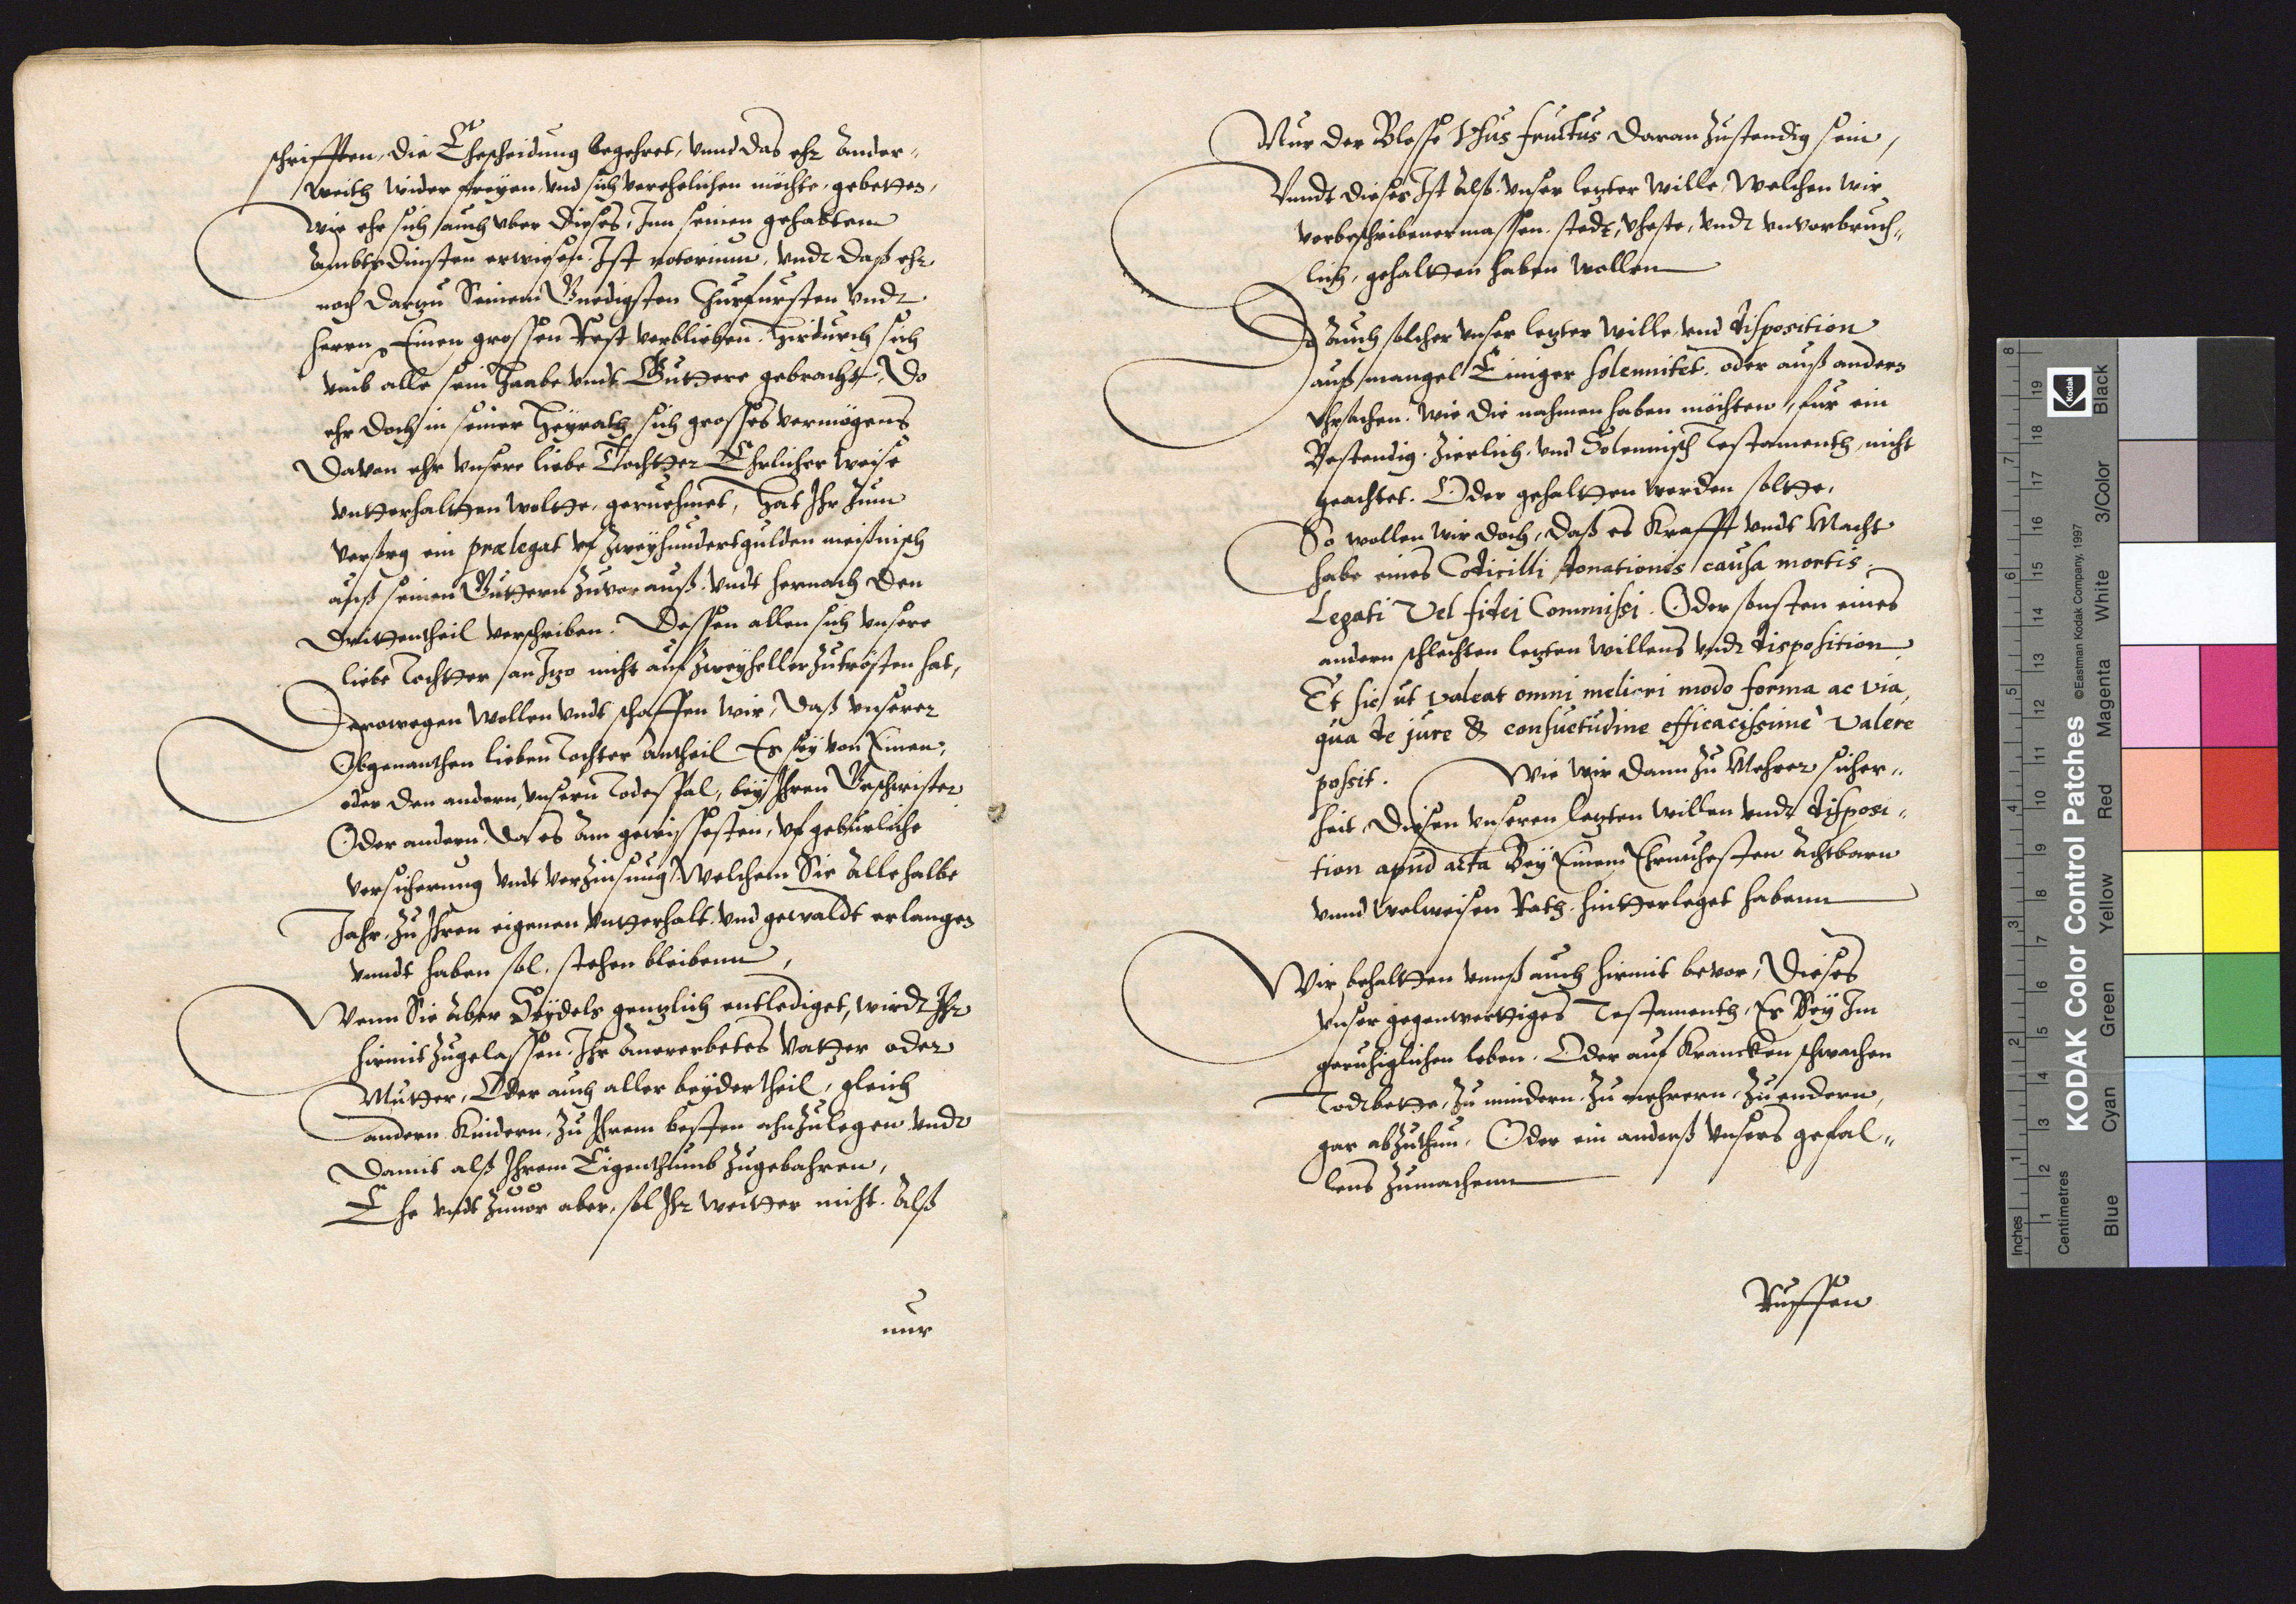 schrifften, die Ehescheidung begehret, vnnd das ehr ander-
weith wider freyen, vnd sich verehelichen möchte, gebetten,
Wie ehr sich auch vber dieses, Inn seinen gehabtenn
Ambtsdinsten erwisen. Ist notorium, vndt daß ehr
noch darzu Seinem Gnedigsten Churfursten vndt
herrn, Einen grossen Rest verblieben, hirdurch sich
vmb alle sein Haabe vndt Guttere gebracht, Do
ehr doch in seiner Heyrath sich grosses vermögens
Davon ehr vnsere liebe Tochtter Ehrlicher weise
vntterhaltten woltte, geruehmet, Hat Ihr zum
ein prælegat vf zweyhundert gulden meißnisch
auß seinen Guttern zuvorauß vndt hernach den
drittentheil verschriben. Dessen allen sich vnsere
liebe Tochtter an Itzo nicht auf zwey heller zutrösten hat,
Derowegen wollen vndt schaffen wir, Daß vnserer
Obgenanthen lieben Tochter antheil Er sey von Einen,
oder den andern, vnsern Todesfal, bey Ihren Geschwister
Oder andern, Da es am gewissesten, vf geburliche
versicherung vndt verzinsung, Welchem Sie alle halbe
Jahr, zu Ihren eigenen vntterhalt vnd gewaldt erlangen
vnndt haben sol, stehen bleibenn,
Wenn Sie aber Heydels gentzlich entlediget, wirdt Ihr
hirmit zugelassen, Ihr anererbetes Vatter oder
Mutter, Oder auch aller beyder theil, gleich
andern Kindern, zu Ihrem besten ahnzulegen vndt
Damit alß Ihrem Eigenthumb zugebahren,
Ehe vndt zuuor aber, sol Ihr weitter nicht. Alß
nur
Nur der Blosse Vsus fructus daran zustendig sein,
Vnndt dieses Ist alß vnser letzter wille, Welchen wir
vorbeschribenermassen, stedt, vheste, vndt vnvorbruch-
lich, gehaltten haben wollenn
Do auch solcher vnser letzter wille, vnd disposition
auß mangel Einiger solennitet, oder auß andern
Vhrsachen. Wie die nahmen haben möchten, fur ein
Bestendig, Zierlich, vnd Solennisch Testamenth, nicht
geachtet. Oder gehaltten werden soltte,
So wollen wir doch, daß es Krafft vndt Macht
habe eines Codicilli donationis causa mortis.
Legati Vel fidei Commissi. Oder sonsten eines
andern schlechten letzten willens vndt disposition
Et sic, ut valeat omni meliori modo forma ac via,
qua de jure & consuetudine efficacissimè valere
possit. Wie wir dann zu Mehrer sicher-
heit, Diesen vnseren letzten willen vndt disposi-
tion apud acta Bey Einem Ehrnuhesten Achtbarn
vnnd wolweisen Rath, hintterleget habenn
Wir behaltten vnnß auch hirmit bevor, Dieses
vnser gegenwerttiges Testamenth, Er Sey Im
geruhiglichen leben. Oder auf Krancken schwachen
Todtbette, zu mindern, zu mehrern, zu endern,
gar abzuthun, Oder ein anders vnsers gefal-
lens zumachenn
Ruffen
KODAK Color Control Patches
©Eastman Kodak Company, 1997
Kodak
Inches 1 2 3 4 5 6 7 8
Centimetres 1 2 3 4 5 6 7 8 9 10 11 12 13 14 15 16 17 18 19
Blue Cyan Green Yellow Red Magenta White 3/Color Black